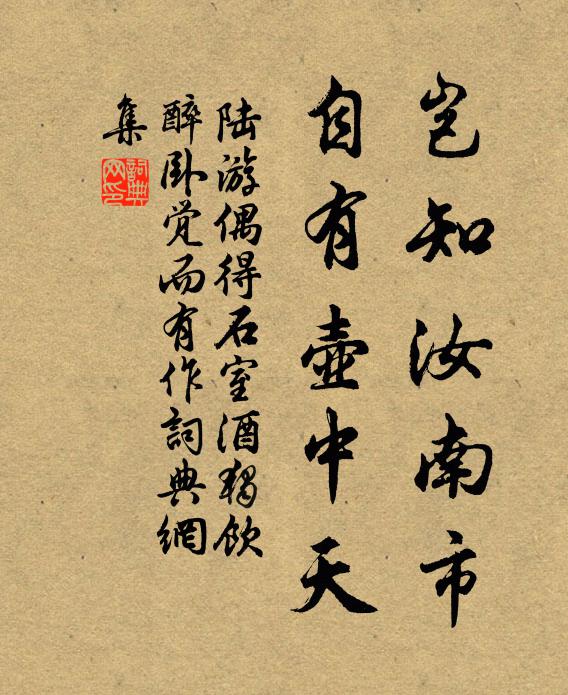 岂知汝南市
自有壶中天
陆游偶得石室酒独饮
醉卧觉而有作詞典網
集
詞典
网印